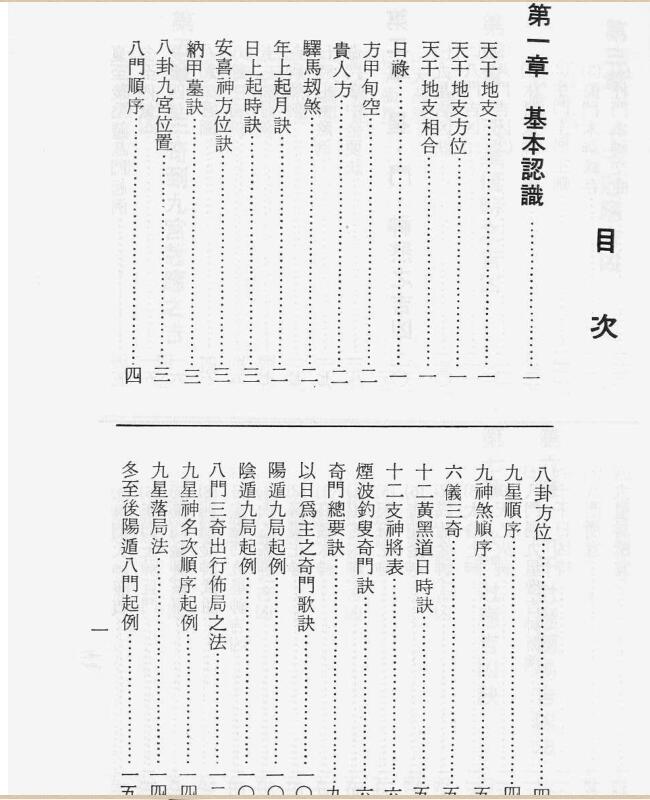 目次
第一章 基本認識……一
天干地支……一
天干地支方位……一
天干地支相合……一
日祿……一
方甲旬空……二
貴人方……二
驛馬刼煞……二
年上起月訣……二
日上起時訣……三
安喜神方位訣……三
納甲墓訣……三
八卦九宮位置……三
八門順序……四
八卦方位……四
九星順序……四
九神煞順序……五
六儀三奇……五
十二黃黑道日時訣……五
十二支神將表……六
煙波釣叟奇門訣……六
奇門總要訣……九
以日爲主之奇門歌訣……一〇
陽遁九局起例……一〇
陰遁九局起例……一〇
八門三奇出行佈局之法……一二
九星神名次順序起例……一四
九星落局法……一四
冬至後陽遁八門起例……一五
一